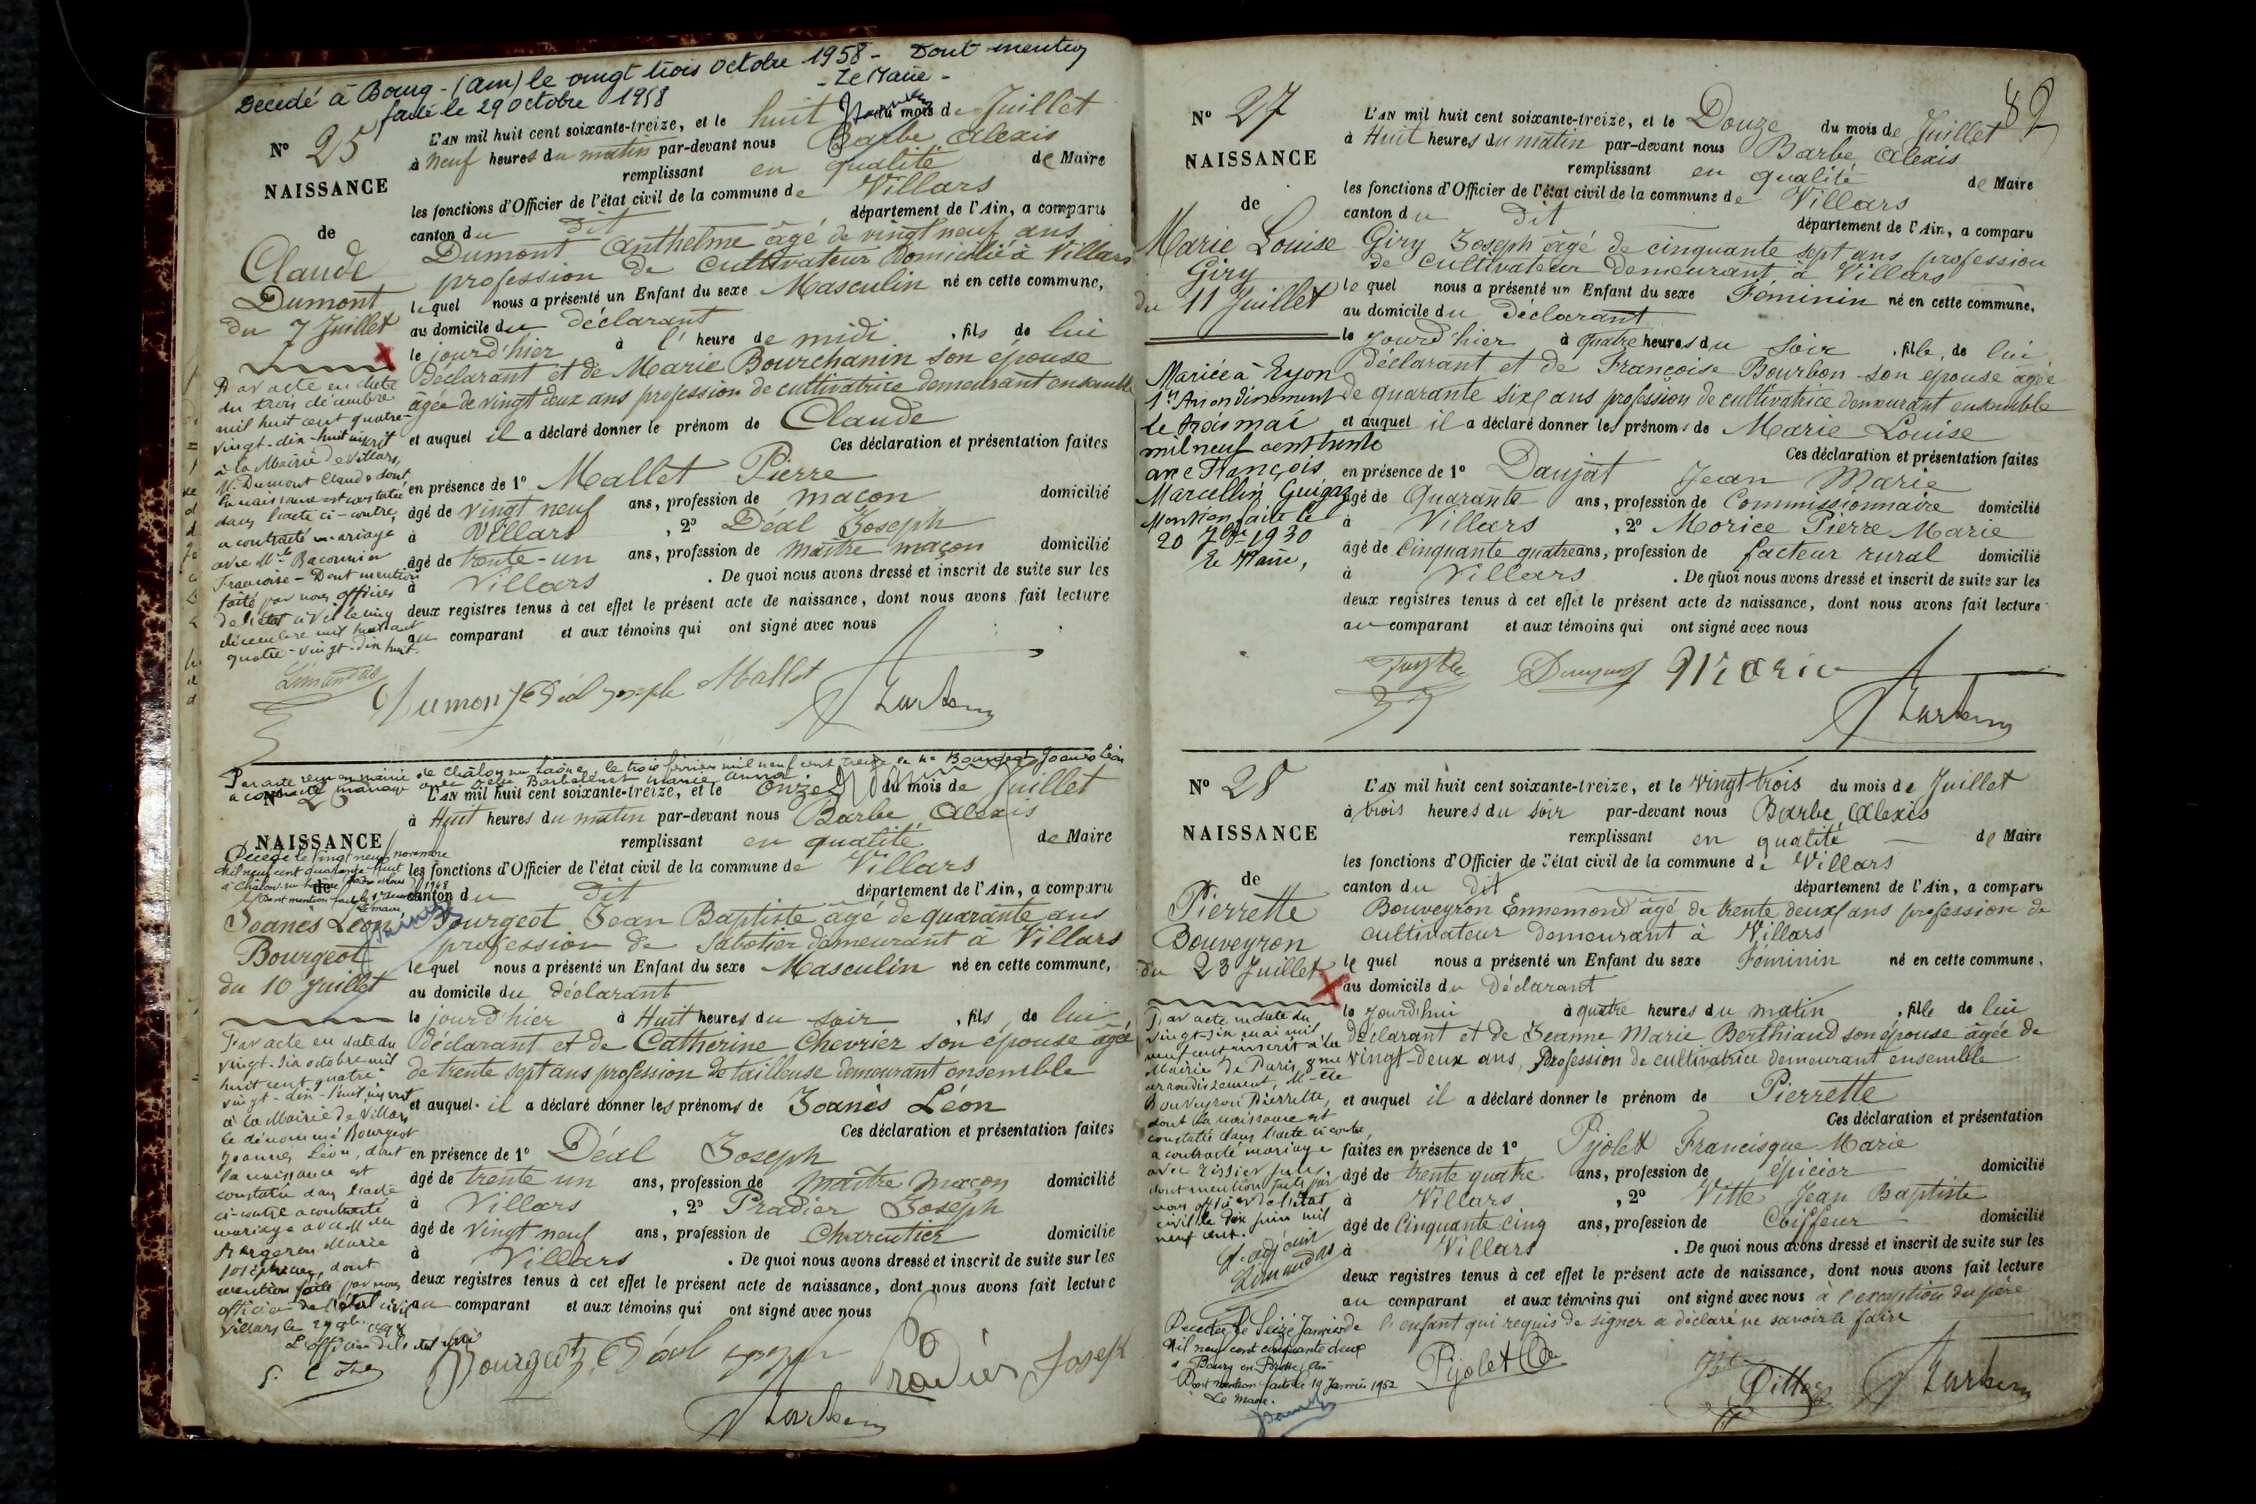 Décédé à Bourg - (Ain) le vingt trois Octobre 1958 - Dont mention
faite le 29 Octobre 1958
- Le Maire -
N° 25
NAISSANCE
de
Claude
Dumont
du 7 Juillet
Par acte en date
du trois décembre
mil huit cent quatre-
vingt-dix-huit inscrit
à la Mairie de Villars,
M. Dumont Claude dont
la naissance est constatée
dans l'acte ci-contre,
a contracté mariage
avec Mlle Baconnin
Françoise - Dont mention
faite par nous officier
de l'état civil le cinq
décembre mil huit cent
quatre-vingt-dix huit.
L'AN mil huit cent soixante-treize, et le huit du mois de Juillet
à neuf heures du matin par-devant nous Barbe Alexis
remplissant en qualité de Maire
les fonctions d'Officier de l'état civil de la commune de Villars
canton du dit département de l'Ain, a comparu
Dumont Anthelme âgé de vingt neuf ans
profession de Cultivateur Domicilié à Villars
lequel nous a présenté un Enfant du sexe Masculin né en cette commune,
au domicile du déclarant
le jourd'hier à l' heure de midi , fils de lui
déclarant et de Marie Bourchanin son épouse
âgée de vingt deux ans profession de cultivatrice demeurant ensemble
et auquel il a déclaré donner le prénom de Claude
Ces déclaration et présentation faites
en présence de 1° Mallet Pierre
âgé de vingt neuf ans, profession de maçon domicilié
à Villars , 2° Déal Joseph
âgé de trente-un ans, profession de maître maçon domicilié
à Villars . De quoi nous avons dressé et inscrit de suite sur les
deux registres tenus à cet effet le présent acte de naissance, dont nous avons fait lecture
au comparant et aux témoins qui ont signé avec nous
Dumont Déal Joseph Mallet
Par acte reçu en mairie de Châlon sur Saône, le trois février mil neuf cent treize, Bourgeot Joanès Léon
a contracté mariage avec
NAISSANCE
Décédé le vingt neuf novembre
mil neuf cent quarante-huit
à Chalon-sur-Saône
de
Joanès Léon
Bourgeot
du 10 Juillet
Par acte en date du
vingt-six octobre mil
huit cent quatre-
vingt-dix-huit, inscrit
à la Mairie de Villars
le dénommé Bourgeot
Joannès Léon, dont
la naissance est
constatée dans l'acte
ci-contre a contracté
mariage avec
Marie
Joséphine, dont
mention faite par nous
officier de l'état civil
Villars le
L'officier de l'état civil
L'AN mil huit cent soixante-treize, et le onze du mois de Juillet
à Huit heures du matin par-devant nous Barbe Alexis
remplissant en qualité de Maire
les fonctions d'Officier de l'état civil de la commune de Villars
canton du dit département de l'Ain, a comparu
Bourgeot Jean Baptiste âgé de quarante ans
profession de Sabotier demeurant à Villars
lequel nous a présenté un Enfant du sexe Masculin né en cette commune,
au domicile du déclarant
le jourd'hier à Huit heures du soir , fils de lui
déclarant et de Catherine Chevrier son épouse âgée
de trente sept ans profession de tailleuse demeurant ensemble
et auquel il a déclaré donner les prénoms de Joanès Léon
Ces déclaration et présentation faites
en présence de 1° Déal Joseph
âgé de trente un ans, profession de maître maçon domicilié
à Villars , 2° Pradier Joseph
âgé de vingt neuf ans, profession de Charcutier domicilié
à Villars . De quoi nous avons dressé et inscrit de suite sur les
deux registres tenus à cet effet le présent acte de naissance, dont nous avons fait lecture
au comparant et aux témoins qui ont signé avec nous
Bourgeot Déal Joseph Pradier Joseph
82
N° 27
NAISSANCE
de
Marie Louise
Giry
du 11 Juillet
Mariée à Lyon
1er Arrondissement
le trois mai
mil neuf cent trente
avec François
Marcellin Guigaz
Mention faite le
20 7bre 1930
Le Maire,
L'AN mil huit cent soixante-treize, et le Douze du mois de Juillet
à Huit heures du matin par-devant nous Barbe Alexis
remplissant en qualité de Maire
les fonctions d'Officier de l'état civil de la commune de Villars
canton du dit département de l'Ain, a comparu
Giry Joseph âgé de cinquante sept ans profession
de Cultivateur demeurant à Villars
lequel nous a présenté un Enfant du sexe Féminin né en cette commune,
au domicile du Déclarant
le jourd'hier à quatre heures du soir , fille de lui
déclarant et de Françoise Bourbon son épouse âgée
de quarante six ans profession de cultivatrice demeurant ensemble
et auquel il a déclaré donner les prénoms de Marie Louise
Ces déclaration et présentation faites
en présence de 1° Daujat Jean Marie
âgé de Quarante ans, profession de Commissionnaire domicilié
à Villars , 2° Morice Pierre Marie
âgé de Cinquante quatre ans, profession de facteur rural domicilié
à Villars . De quoi nous avons dressé et inscrit de suite sur les
deux registres tenus à cet effet le présent acte de naissance, dont nous avons fait lecture
au comparant et aux témoins qui ont signé avec nous
N° 28
NAISSANCE
de
Pierrette
Bouveyron
du 23 Juillet
Par acte en date du
vingt-six mai mil
neuf cent inscrit à la
Mairie de Paris, 8me
arrondissement, Mlle
Bouveyron Pierrette,
dont la naissance est
constatée dans l'acte ci-contre,
a contracté mariage
avec Tissier Jules,
dont mention faite par
nous officier de l'état
civil le dix juin mil
neuf cent.
Décédée le Seize Janvier
mil neuf cent cinquante deux
à Bourg en Bresse, Ain
Dont mention faite le 19 Janvier 1952
Le Maire.
L'AN mil huit cent soixante-treize, et le vingt-trois du mois de Juillet
à trois heures du soir par-devant nous Barbe Alexis
remplissant en qualité de Maire
les fonctions d'Officier de l'état civil de la commune de Villars
canton du dit département de l'Ain, a comparu
Bouveyron Ennemond âgé de trente deux ans profession de
cultivateur demeurant à Villars
lequel nous a présenté un Enfant du sexe Féminin né en cette commune,
au domicile du Déclarant
le jourd'hui à quatre heures du matin , fille de lui
déclarant et de Jeanne Marie Berthiaud son épouse âgée de
vingt-deux ans, profession de cultivatrice demeurant ensemble
et auquel il a déclaré donner le prénom de Pierrette
Ces déclaration et présentation
faites en présence de 1° Pijolet Francisque Marie
âgé de trente quatre ans, profession de épicier domicilié
à Villars , 2° Vitte Jean Baptiste
âgé de Cinquante cinq ans, profession de Coiffeur domicilié
à Villars . De quoi nous avons dressé et inscrit de suite sur les
deux registres tenus à cet effet le présent acte de naissance, dont nous avons fait lecture
au comparant et aux témoins qui ont signé avec nous à l'exception du père
de l'enfant qui requis de signer a déclaré ne savoir le faire
Pijolet